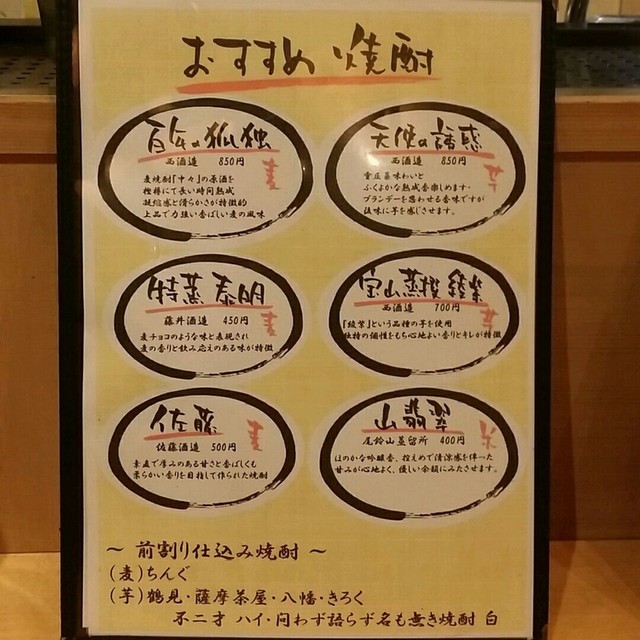 おすすめ 焼酎
百年の孤独
西酒造 850円
麦
麦焼酎「中々」の原酒を
樫樽にて長い時間熟成
凝縮感と滑らかさが特徴的
上品で力強い香ばしい麦の風味
天使の誘惑
西酒造 850円
芋
重圧な味わいと
ふくよかな熟成香楽しめます。
ブランデーを思わせる香味ですが
後味に芋を感じさせます。
特蒸 泰明
藤井酒造 450円
麦
麦チョコのような味と表現され
麦の香りと飲み応えのある味が特徴
宝山蒸撰綾紫
西酒造 700円
芋
「綾紫」という品種の芋を使用
独特の個性をもち心地よい香りとキレが特徴
佐藤
佐藤酒造 500円
麦
素麦で厚みのある甘さと香ばしくも
柔らかい香りを目指して作られた焼酎
山翡翠
尾鈴山蒸留所 400円
米
ほのかな吟醸香、控えめで清涼感を伴った
甘みが心地よく、優しい余韻にみたさせます。
～ 前割り仕込み焼酎 ～
(麦)ちんぐ
(芋)鶴見・薩摩茶屋・八幡・きろく
不二才 ハイ・問わず語らず名も無き焼酎 白